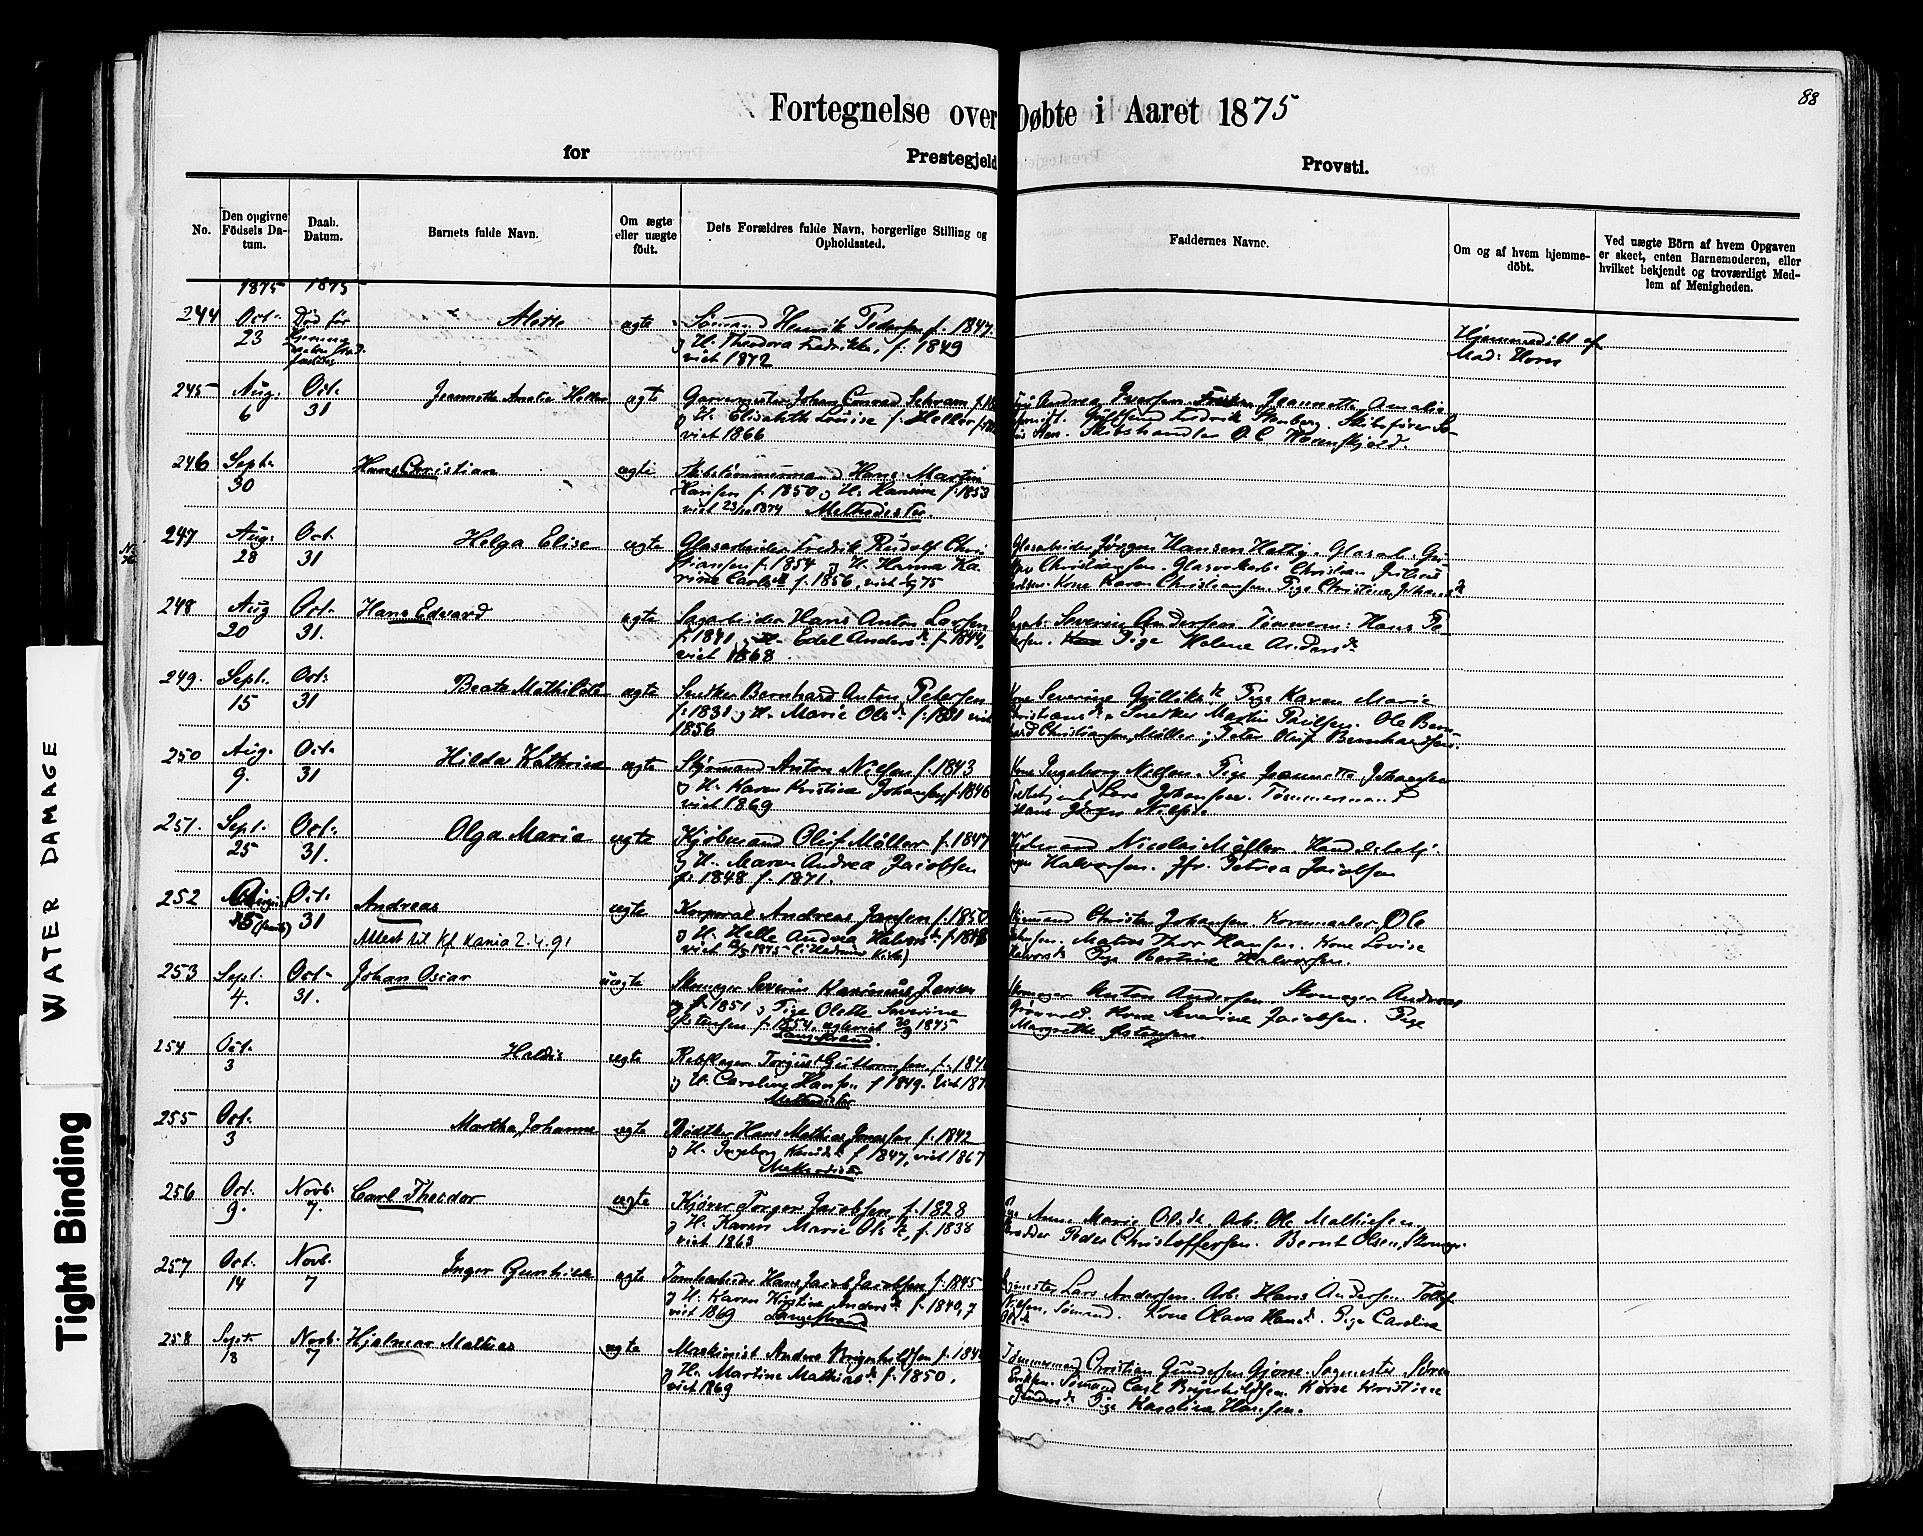 88
Fortegnelse over Døbte i Aaret 1875
for Prestegjeld Provsti.
No.
Den opgivne Födsels Da-
tum.
Daab.
Datum.
Barnets fulde Navn.
Om ægte
eller uægte
födt.
Dets Forældres fulde Navn, borgerlige Stilling og
Opholdssted.
Faddernes Navne.
Om og af hvem hjemme-
döbt.
Ved uægte Börn af hvem Opgaven
er skeet, enten Barnemoderen, eller
hvilket bekjendt og troværdigt Med-
lem af Menigheden.
1875 1875
244 Oct. 23 Död før
Alette ægte Sømand Henrik Pedersen f. 1847
og H. Theodora Fredrikke, f. 1849
viet 1872
Hjemmedöbt af
Mad: Horn
245 Aug. 6 Oct. 31 Jeannette Amalie Heller ægte Garvermester Johan Conrad Schram
og H. Elisabeth Louise f. Heller
viet 1866
Andrea Iversen Jeannette Amalie
Fredrik Skibsfører
Skibshandler O. C. Wærenskjold.
246 Sept. 30 Hans Christian ægte Skibstömmermand Hans Martin
Hansen f. 1850 og H. Hansine f. 1853
viet 1874 Methodister.
247 Aug. 28 Oct. 31 Helga Elise ægte Glasarbeider Fredrik Rudolf Chri-
stiansen f. 1854 og H. Hanna Ka-
rine Carlsd. f. 1856, viet 75
Glasarbeider Jörgen Hansen Glasarb. Gu-
Christiansen. Christian Julius
Kone Karen Christiansen. Pige Christine Johansd.
248 Aug 20 Oct. 31. Hans Edvard ægte Sagarbeider Hans Anton Larsen
f. 1841 og H. Edel Andersd. f. 1844,
viet 1868.
Severin Andersen Tömmerm: Hans Pe-
Pige Helene Andersd.
249. Sept. 15 Oct. 31 Beate Mathilde ægte Snedker Bernhard Anton Petersen
f. 1831 og H. Marie Olsd. f. 1831 viet
1856
Kone Severine Gulliksd. Pige Karen Marie
Christiansd. Snedker Martin Paulsen. Ole Bern-
hard Christiansen, Möller og Peter Oluf Bernhardsen.
250 Aug. 9. Oct. 31 Hilda Kathrine ægte Styrmand Anton Nielsen f. 1843
og H. Karen Kristine Johansen, f. 1846
viet 1869
Kone Ingeborg Nielsen. Pige Jeannette Johansen
Lars Johansen. Tömmermand
Hans Jörgen Nielsen.
251. Sept. 25 Oct. 31. Olga Marie ægte Kjøbmand Oluf Möller f. 1847
og H. Maren Andrea Jacobsen
f. 1848 f. 1871.
Nicolai Möller. Handelsbetj.
Halvorsen. Jfr. Petrea Jacobsen
252 Aug. 15 Oct. 31 Andreas ægte Korporal Andreas Jansen f. 1850
og H. Helle Andrea Halvorsd. f. 1848
viet 1875 (i Hedrum Kirke)
Attest til Kf Kania 2.4.91
Styrmand Christen Johansen. Ole
Matros Thor Hansen. Kone Lovise
Halvorsd. Pige Bertine Halvorsen.
253 Sept. 4. Oct. 31. Johan Oscar uægte Skomager Severin Jansen
f. 1851 og Pige Olette Severine
f. 1854, 1875
Langestrand.
Skomager Anton Andersen. Skomager Andreas
Kone Severine Jacobsen. Pige
Margrethe
254 Oct. 3 Haldis ægte Rebslager Guttormsen, f. 184
og H. Caroline Hansen f 1849. Viet 187
Methodister
255 Oct. 3 Martha Johanne ægte Bödker Hans Mathias Jonassen f. 1842
og H. Ingeborg Knudsd. f 1847, viet 1867
Methodister
256 Oct. 9. Novb. 7. Carl Theodor ægte Kjörer Torger Jacobsen, f. 1828
og H. Karen Marie Olsd., f. 1838
viet 1863
Anne Marie Olsd. Arb. Ole Mathisen
Peder Christoffersen. Bernt Olsen, Skomager
257 Oct. 14 Novb. 7 Inger Gunhild ægte Tomtearbeider Hans Jacob Jacobsen f. 1845
og H. Karen Kirstine Andersd. f. 1840,
viet 1869 Langestrand
Lars Andersen. Arb. Hans Andersen. Tollef
Nielsen, Sömand. Kone Olava Hansd. Pige Carolina
Olsd.
258 Sept. 18 Novb. 7 Hjalmar Mathias ægte Maskinist Anders Brynhildsen f. 184
og H. Martine Mathiasd. f. 1850.
viet 1869
Tömmermand Christian Gundersen Gjone. Sagmester Sören
Eriksen. Sömand Carl Brynhildsen. Kone Kristine
Gundersd. Pige Karoline Hansen.
WATER DAMAGE
Tight Binding